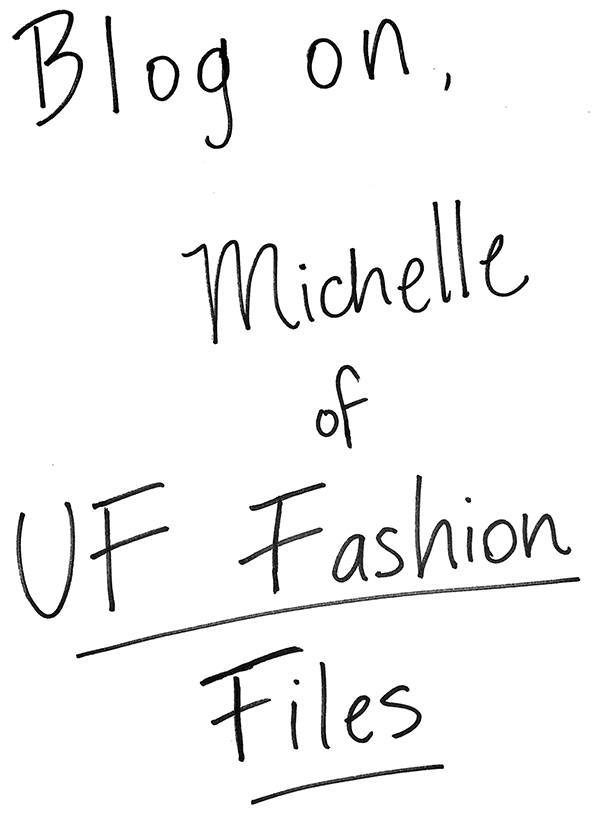 Blog on,
Michelle
of
UF Fashion
Files